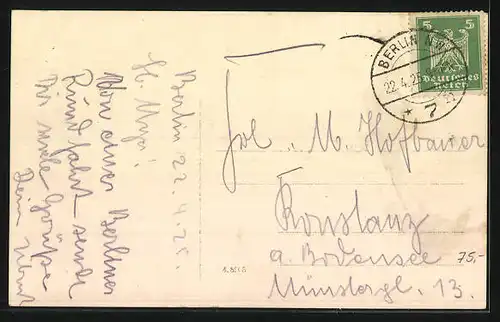 Berlin 22.4.25.
Von einer Berliner
Rundfahrt sendet
Dir viele Grüße
Dein
Frl. M. Hofbauer
Konstanz
a. Bodensee
Münstergl. 13.
75,-
5
5
Deutsches
Reich
BERLIN
22.4.25
* 7